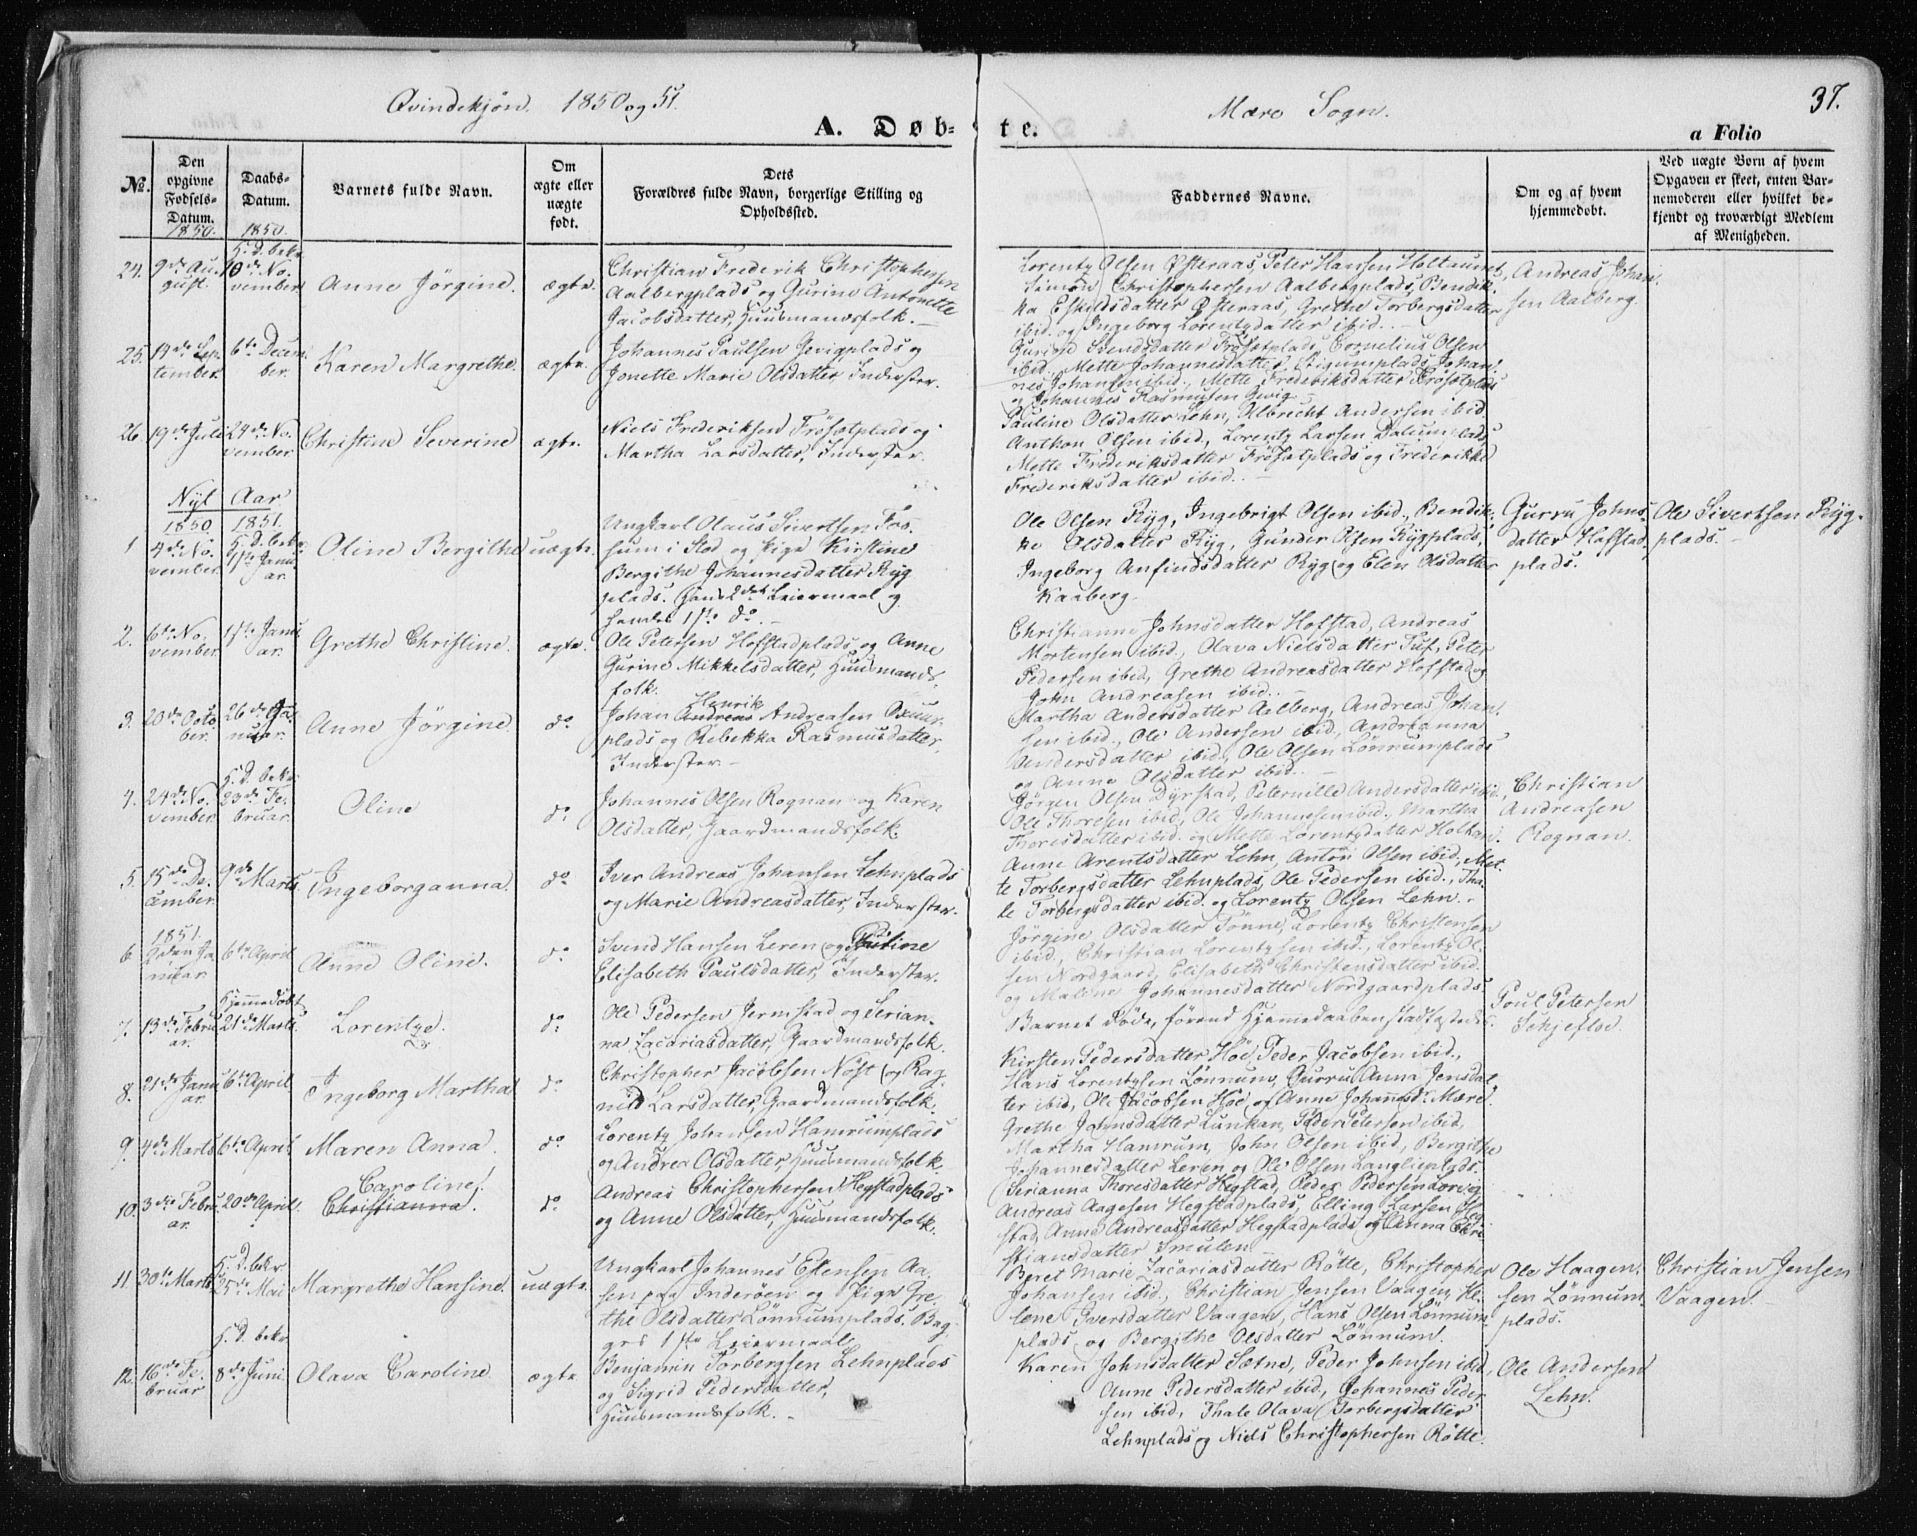 Qvindekjøn. 1850 og 51.
Mære Sogn.
37.
A. Døb-
te.
a Folio
No.
Den opgivne Fødsels-Datum.
1850.
Daabs-Datum.
1850.
Barnets fulde Navn.
Om ægte eller uægte født.
Dets Forældres fulde Navn, borgerlige Stilling og Opholdssted.
Faddernes Navne.
Om og af hvem hjemmedøbt.
Ved uægte Børn af hvem Opgaven er skeet, enten Barnemoderen eller hvilket bekjendt og troværdigt Medlem af Menigheden.
24.
9de Au-
gust.
H. D. bekr.
10de No-
vember
Anne Jörgine.
ægte.
Christian Frederik Christophersen
Aalbergplads og Gurine Antonette
Jacobsdatter, Huusmandsfolk.
Lorentz Olsen Østeraas, Peter Hansen Holtaunet,
Simon Christophersen Aalbergplads, Bendik-
ka Eskildsdatter Østeraas, Grethe Torbergsdatter
ibid. og Ingeborg Lorentzdatter ibid.
Andreas Johan-
sen Aalberg.
25.
14de Sep-
tember.
6te Decem-
ber.
Karen Margrethe.
ægte.
Johannes Paulsen Jevigplads og
Jonette Marie Olsdatter, Inderster.
Svendsdatter Frösetplads, Cornelius Olsen
ibid., Mette Johannesdatter, Johan-
nes Johansen ibid., Mette Frederiksdatter Frösetplads
og Johannes Rasmusen Jevig.
26.
19de Juli
24de No-
vember.
Christine Severine
ægte.
Niels Frederiksen Frösetplads og
Martha Larsdatter, Inderster.
Pauline Olsdatter Lehn, Albrecht Andersen ibid.
Anthon Olsen ibid., Lorentz Larsen Dalumplads,
Mette Frederiksdatter Frösetplads og Frederikke
Frederiksdatter ibid.
Nyt Aar
1850
1851.
1
4de No-
vember.
H. D. bekr.
1ste Janu-
ar.
Oline Bergithe
uægte.
Ungkarl Olaus Sivertsen Fos-
sum i Stod og Pige Kirstine
Bergithe Johannesdatter Ryg-
plads. Hans 2det Leiermaal og
hendes 1ste do.
Ole Olsen Ryg, Ingebrigt Olsen ibid., Bendik-
ke Olsdatter Ryg, Gunder Olsen Rygplads,
Ingeborg Anfindsdatter Ryg og Elen Olsdatter
Kaaberg.
Gurru Johns-
datter Hofstad-
plads.
Ole Sivertsen Ryg-
plads.
2.
6te No-
vember.
1ste Janu-
ar.
Grethe Christine.
ægte.
Ole Petersen Hofstadplads og Anne
Gurine Mikkelsdatter, Huusmands-
folk.
Christianne Johnsdatter Hofstad, Andreas
Mortensen ibid., Olava Nielsdatter Tuf, Peter
Pedersen ibid., Grethe Andreasdatter Hofstad og
John Andreasen ibid.
3.
20de Octo-
ber.
26de Ja-
nuar.
Anne Jörgine.
do
Henrik
Johan Andreas Andreasen Oxuur-
plads og Rebekka Rasmusdatter,
Inderster.
Martha Andersdatter Aalberg, Andreas Johan-
sen ibid., Ole Andersen ibid., Andreanna
Andersdatter ibid., Ole Olsen Lönnumplads
og Anne Olsdatter ibid.
4.
24de No-
vember.
H. D. bekr.
23de Fe-
bruar.
Oline
do
Johannes Olsen Rognan og Karen
Olsdatter, Gaardmandsfolk.
Jörgen Olsen Dyrstad, Peternille Andersdatter ibid.,
Ole Thoresen ibid., Ole Johannesen ibid., Martha
Thoresdatter ibid. og Mette Lorentzdatter Holtan.
Christian
Andreasen
Rognan.
5.
15de De-
cember.
9de Marts
Ingeborganna.
do
Iver Andreas Johansen Lehnplads
og Marie Andreasdatter, Inderster.
Anne Arentsdatter Lehn, Anton Olsen ibid., Met-
te Torbergsdatter Lehnplads, Ole Pedersen ibid., Tha-
le Torbergsdatter ibid. og Lorentz Olsen Lehn.
1851.
6
2den Ja-
nuar.
6te April
Anne Oline.
do
Svend Hansen Leren og
Elisabeth Paulsdatter, Inderster.
Jörgine Olsdatter Tönne, Lorentz Christensen
ibid., Christian Lorentzsen ibid., Lorentz Ol-
sen Nordgaard, Elisabeth Christensdatter ibid.
og Malene Johannesdatter Nordgaardplads.
7.
13de Febru-
ar.
Hjemmedöbt
21de Marts.
Lorentze.
do
Ole Pedersen Jermstad og Serian-
na Zacariasdatter, Gaardmandsfolk.
Barnet döde, förend Hjemmedaaben stadfæstedes.
Poul Petersen
Schjefloe.
8.
21de Janu-
ar.
6te April
Ingeborg Martha
do
Christopher Jacobsen Nöst og Rag-
nild Larsdatter, Gaardmandsfolk.
Kirsten Pedersdatter Höe, Peder Jacobsen ibid.,
Hans Lorentzsen Lönnum, Gurru Anna Jensdat-
ter ibid., Ole Jacobsen Höe og Anne Johannesd. Mære.
9.
4de Marts
6te April
Maren Anna.
do
Lorentz Johansen Hamrumplads
og Andrea Olsdatter, Huusmandsfolk.
Grethe Johnsdatter Lunkan, Peder Petersen ibid.,
Martha Hamrum, John Olsen ibid., Bergithe
Johannesdatter Leren og Ole Olsen Langlieplads.
10.
3die Febru-
ar.
20de April.
Caroline.
Christianna.
do
Andreas Christophersen Hegstadplads
og Anne Olsdatter, Huusmandsfolk.
Serianna Thoresdatter Hegstad, Peder Pedersen Lorvig
Andreas Aagesen Hegstadplads, Elling Larsen Heg-
stad, Anne Andreasdatter Hegstadplads og Anna Chri-
stiansdatter Smulen.
11.
30te Marts
H. D. bekr.
25de Mai
Margrethe Hansine.
uægte.
Ungkarl Johannes Estensen Aa-
sen paa Inderöen og Pige Gre-
the Olsdatter Lönnumplads. Beg-
ges 1ste Leiermaal.
Beret Marie Zacariasdatter Rötte, Christopher
Johansen ibid., Christian Jensen Vaagen, He-
lene Iversdatter Vaagen, Hans Olsen Lönnum-
plads og Bergithe Olsdatter Lönnum.
Ole Haagen-
sen Lönnum-
plads.
Christian Jensen
Vaagen.
12.
16de Fe-
bruar
H. D. bekr.
8de Juni
Olava Caroline
ægte
Benjamin Torbergsen Lehnplads
og Sigrid Pedersdatter,
Huusmandsfolk.
Karen Johnsdatter Sætne, Peder Johnsen ibid.,
Anne Pedersdatter ibid., Johannes Peder-
sen ibid., Thale Olava Torbergsdatter
Lehnplads og Niels Christophersen Rötte.
Ole Andersen
Lehn.